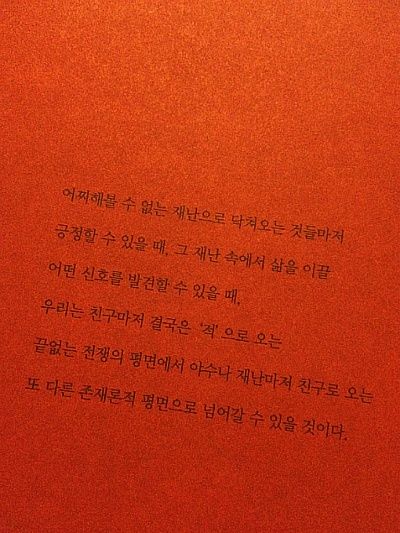 어찌해볼 수 없는 재난으로 닥쳐오는 것들마저
긍정할 수 있을 때, 그 재난 속에서 삶을 이끌
어떤 신호를 발견할 수 있을 때,
우리는 친구마저 결국은 '적'으로 오는
끝없는 전쟁의 평면에서 야수나 재난마저 친구로 오는
또 다른 존재론적 평면으로 넘어갈 수 있을 것이다.